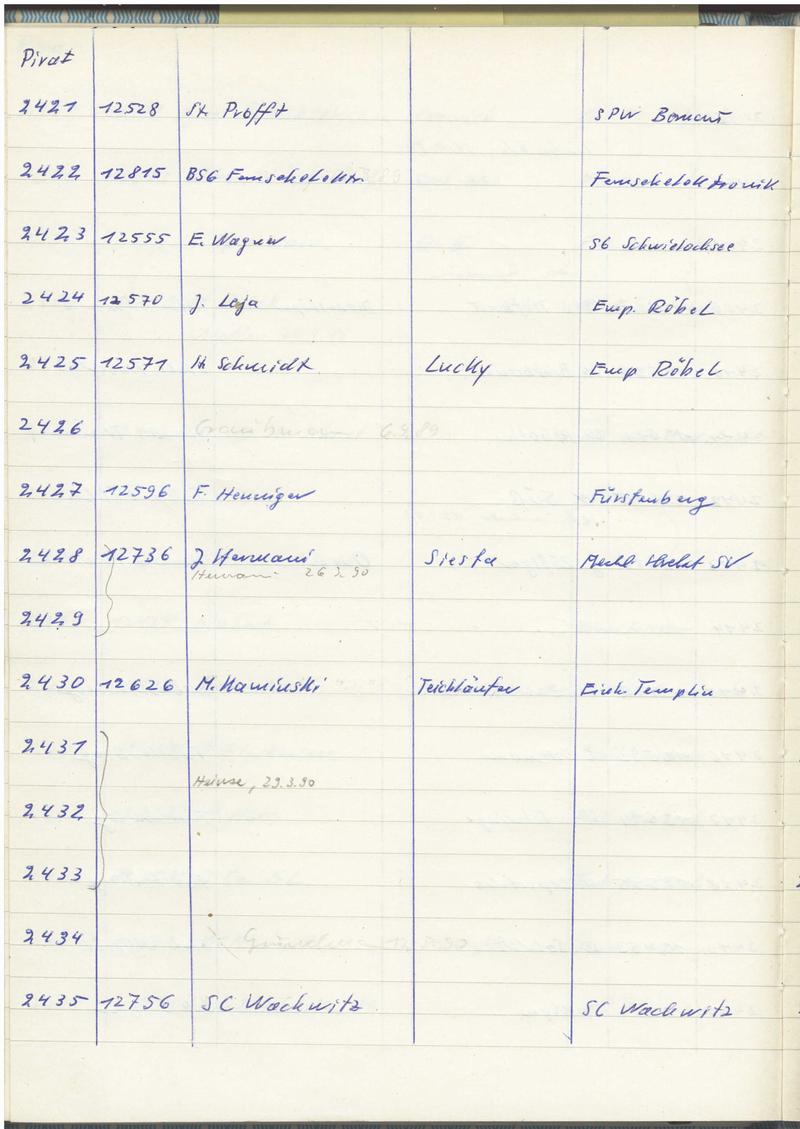 Pirat
2421 12528 St. Profft SPW
2422 12815 BSG Fernsehelektr. Fernsehelektronik
2423 12555 E. Wagner SG Schwielochsee
2424 12570 J. Leja Emp. Röbel
2425 12571 H. Schmidt Lucky Emp Röbel
2426 6.9.89
2427 12596 F. Henniger Fürstenberg
2428 12736 J. Hermani Siesta SV
Hermani 26.3.90
2429
2430 12626 M. Kaminski Teichläufer Einh. Templin
2431
Heinse, 29.3.90
2432
2433
2434
2435 12756 SC Wachwitz SC Wachwitz